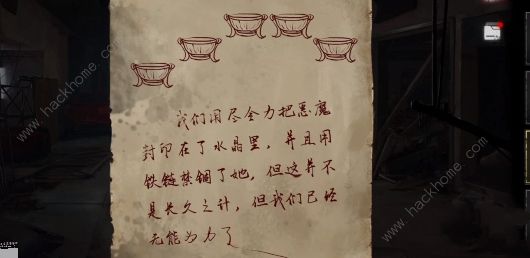 我们用尽全力把恶魔
封印在了水晶里，并且用
铁链禁锢了她，但这并不
是长久之计，但我们已经
无能为力了
www.hackhome.com
www.hackhome.com
www.hackhome.com
www.hackhome.com